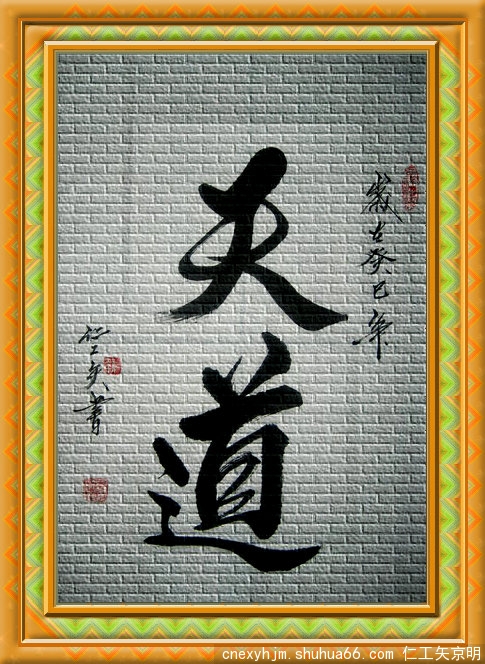 天道
歲在癸巳年
仁工矢書
cnexyhjm.shuhua66.com 仁工矢京明